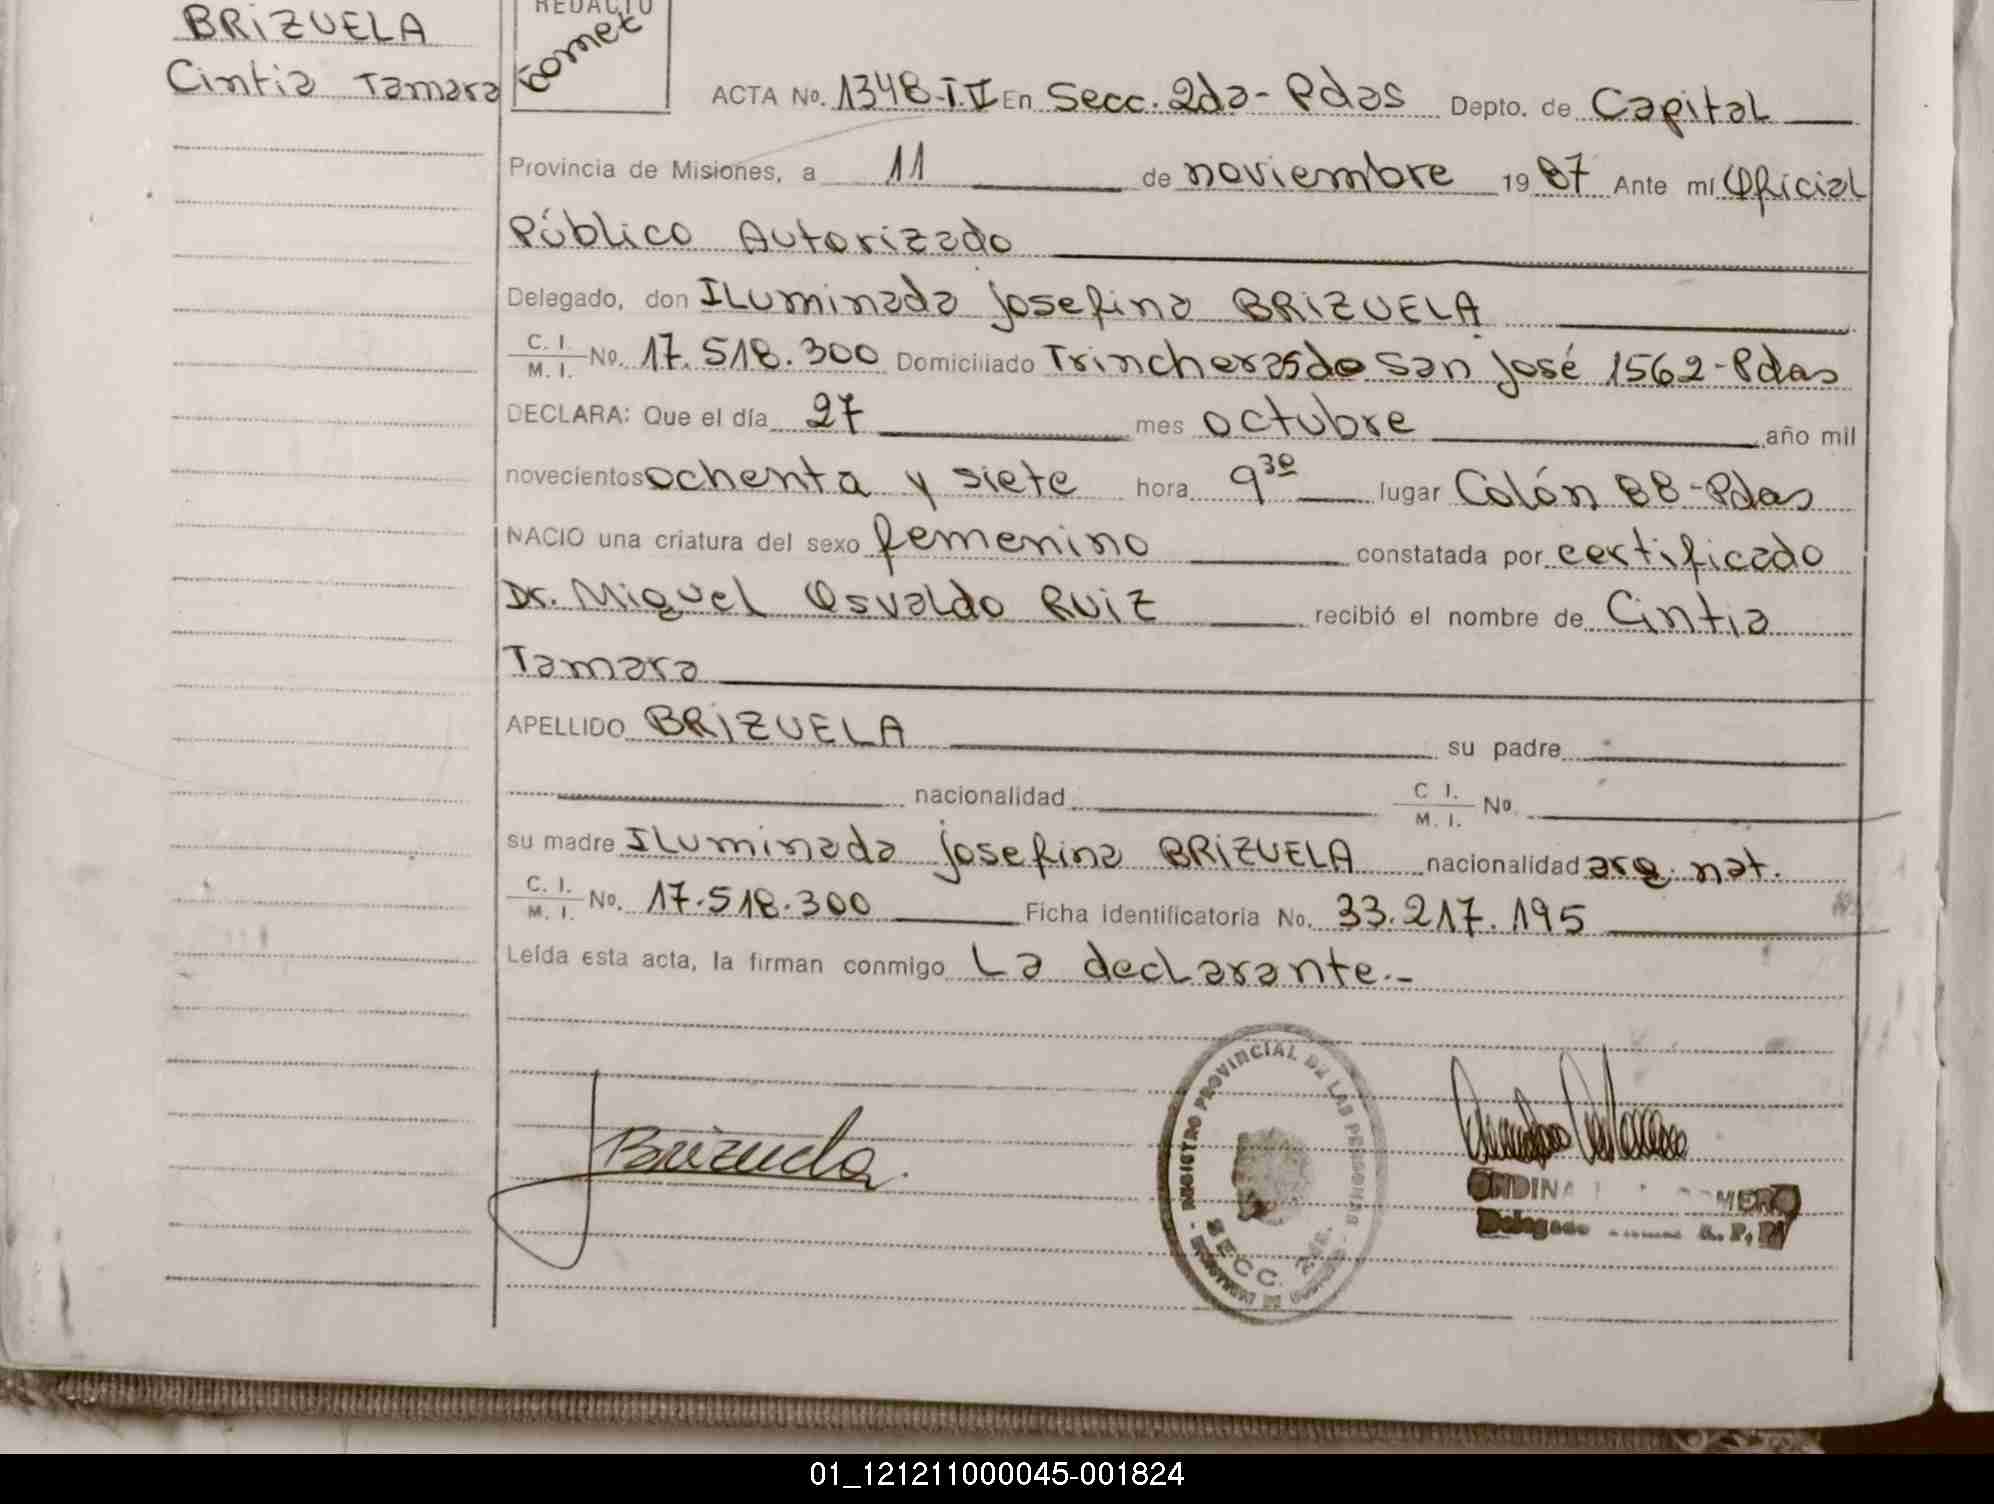 BRIZUELA
Cintia Tamara
REDACTO
Gomez
ACTA No. 1348-IV En Secc. 2da - Pdas Depto. de Capital
Provincia de Misiones, a 11 de noviembre 1987 Ante mí Oficial
Público Autorizado
Delegado, don Iluminada Josefina BRIZUELA
C. I. / M. I. No. 17.518.300 Domiciliado Trincheras de San José 1562 - Pdas
DECLARA: Que el día 27 mes octubre año mil
novecientos ochenta y siete hora 9 30 lugar Colón 88 - Pdas
NACIO una criatura del sexo femenino constatada por certificado
Dr. Miguel Osvaldo RUIZ recibió el nombre de Cintia
Tamara
APELLIDO BRIZUELA su padre
nacionalidad C I. / M. I. No.
su madre Iluminada Josefina BRIZUELA nacionalidad arg. nat.
C. I. / M. I. No. 17.518.300 Ficha Identificatoria No. 33.217.195
Leída esta acta, la firman conmigo La declarante.-
REGISTRO PROVINCIAL DE LAS PERSONAS
SECC. 2da.
JBrizuela.
ONDINA
Delegado
R. P. P.
01_121211000045-001824